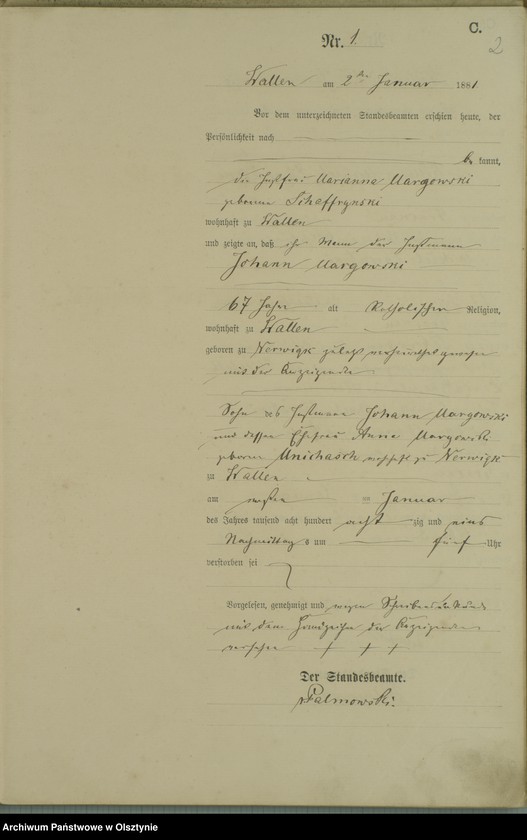 C.
2
Nr. 1.
Wallen am 2ten Januar 1881
Vor dem unterzeichneten Standesbeamten erschien heute, der
Persönlichkeit nach
be kannt,
die Instfrau Marianna Margowski
geborene Scheffrynski
wohnhaft zu Wallen
und zeigte an, daß ihr Mann der Instmann
Johann Margowski
67 Jahre alt Katholischer Religion,
wohnhaft zu Wallen
geboren zu Nerwigk zuletzt verheirathet gewesen
mit der Anzeigende
Sohn des Instmann Johann Margowski
und dessen Ehefrau Anna Margowski
geborene Unichasch wohnhaft zu Nerwigk
zu Wallen
am ersten Januar
des Jahres tausend acht hundert acht zig und eins
Nachmittag s um fünf Uhr
verstorben sei
Vorgelesen, genehmigt und wegen Schreibens
mit dem Handzeichen der Anzeigenden
versehen + + +
Der Standesbeamte.
Palmowski.
Archiwum Państwowe w Olsztynie